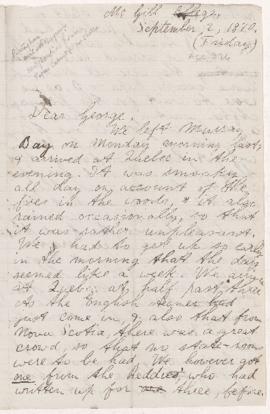 Mc Gill College,
September 2, 1870.
(Friday)
Dear George,
We left Murray
Bay on Monday morning last,
& arrived at Quebec in the
evening. It was smoky
all day on account of the
fires in the woods, & it also
rained occasionally, so that
it was rather unpleasant.
We had to get up so early
in the morning that the day
seemed like a week. We arrived
at Quebec at half past three
As the English steamer had
just come in, & also that from
Nova Scotia, there was a great
crowd, so that no state-room
were to be had. We however got
one from the
who had
written up for three, before